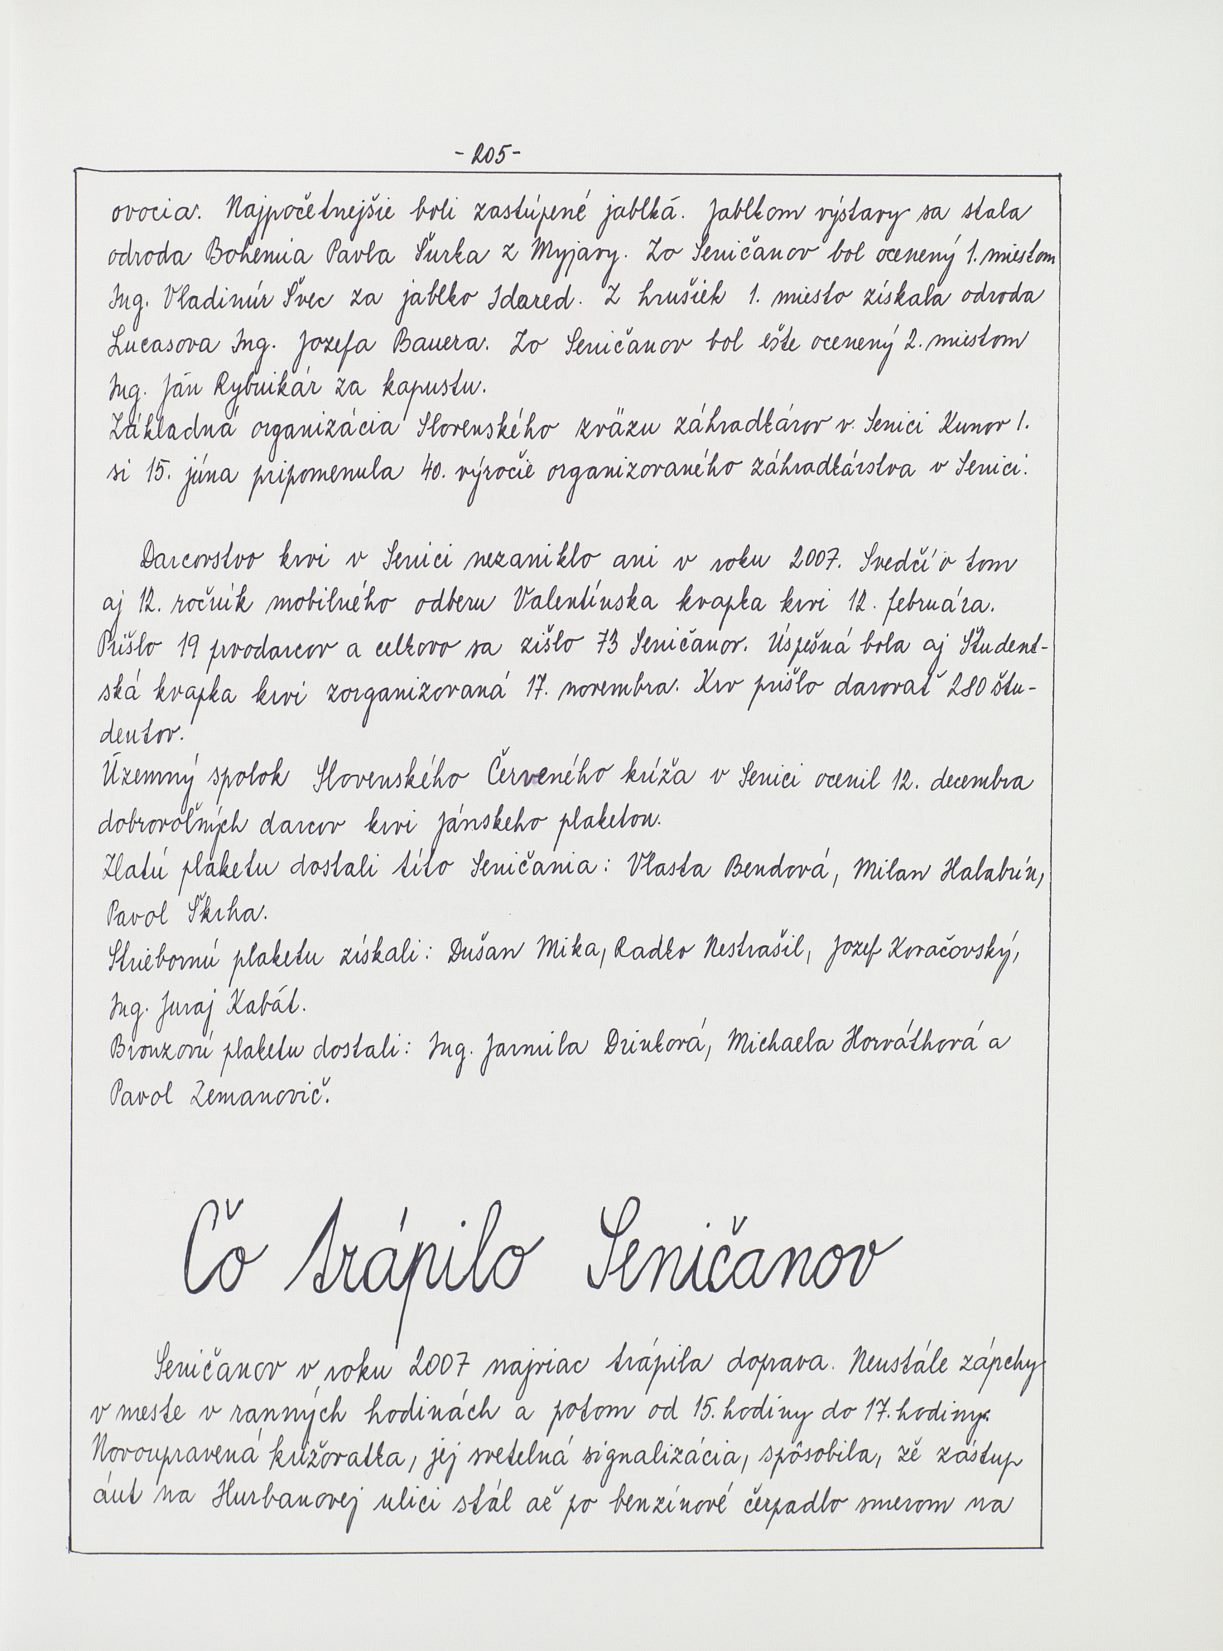 - 205 -
ovocia. Najpočetnejšie boli zastúpené jablká. Jablkom výstavy sa stala
odroda Bohemia Pavla Šurka z Myjavy. Zo Seničanov bol ocenený 1. miestom
Ing. Vladimír Švec za jablko Idared. Z hrušiek 1. miesto získala odroda
Lucasova Ing. Jozefa Bauera. Zo Seničanov bol ešte ocenený 2. miestom
Ing. Ján Rybnikár za kapustu.
Základná organizácia Slovenského zväzu záhradkárov v Senici Kunov 1.
si 15. júna pripomenula 40. výročie organizovaného záhradkárstva v Senici.
Darcovstvo krvi v Senici nezaniklo ani v roku 2007. Svedčí o tom
aj 12. ročník mobilného odberu Valentínska kvapka krvi 12. februára.
Prišlo 19 prvodarcov a celkovo sa zišlo 73 Seničanov. Úspešná bola aj Študent-
ská kvapka krvi zorganizovaná 17. novembra. Krv prišlo darovať 280 štu-
dentov.
Územný spolok Slovenského Červeného kríža v Senici ocenil 12. decembra
dobrovoľných darcov krvi Jánskeho plaketou.
Zlatú plaketu dostali títo Seničania: Vlasta Bendová, Milan Halabrín,
Pavol Škrha.
Striebornú plaketu získali: Dušan Mika, Radko Nestrašil, Jozef Kovačovský,
Ing. Juraj Kabát.
Bronzovú plaketu dostali: Ing. Jarmila Drinková, Michaela Horváthová a
Pavol Zemanovič.
Čo trápilo Seničanov
Seničanov v roku 2007 najviac trápila doprava. Neustále zápchy
v meste v ranných hodinách a potom od 15. hodiny do 17. hodiny.
Novoupravená križovatka, jej svetelná signalizácia, spôsobila, že zástup
áut na Hurbanovej ulici stál až po benzínové čerpadlo smerom na